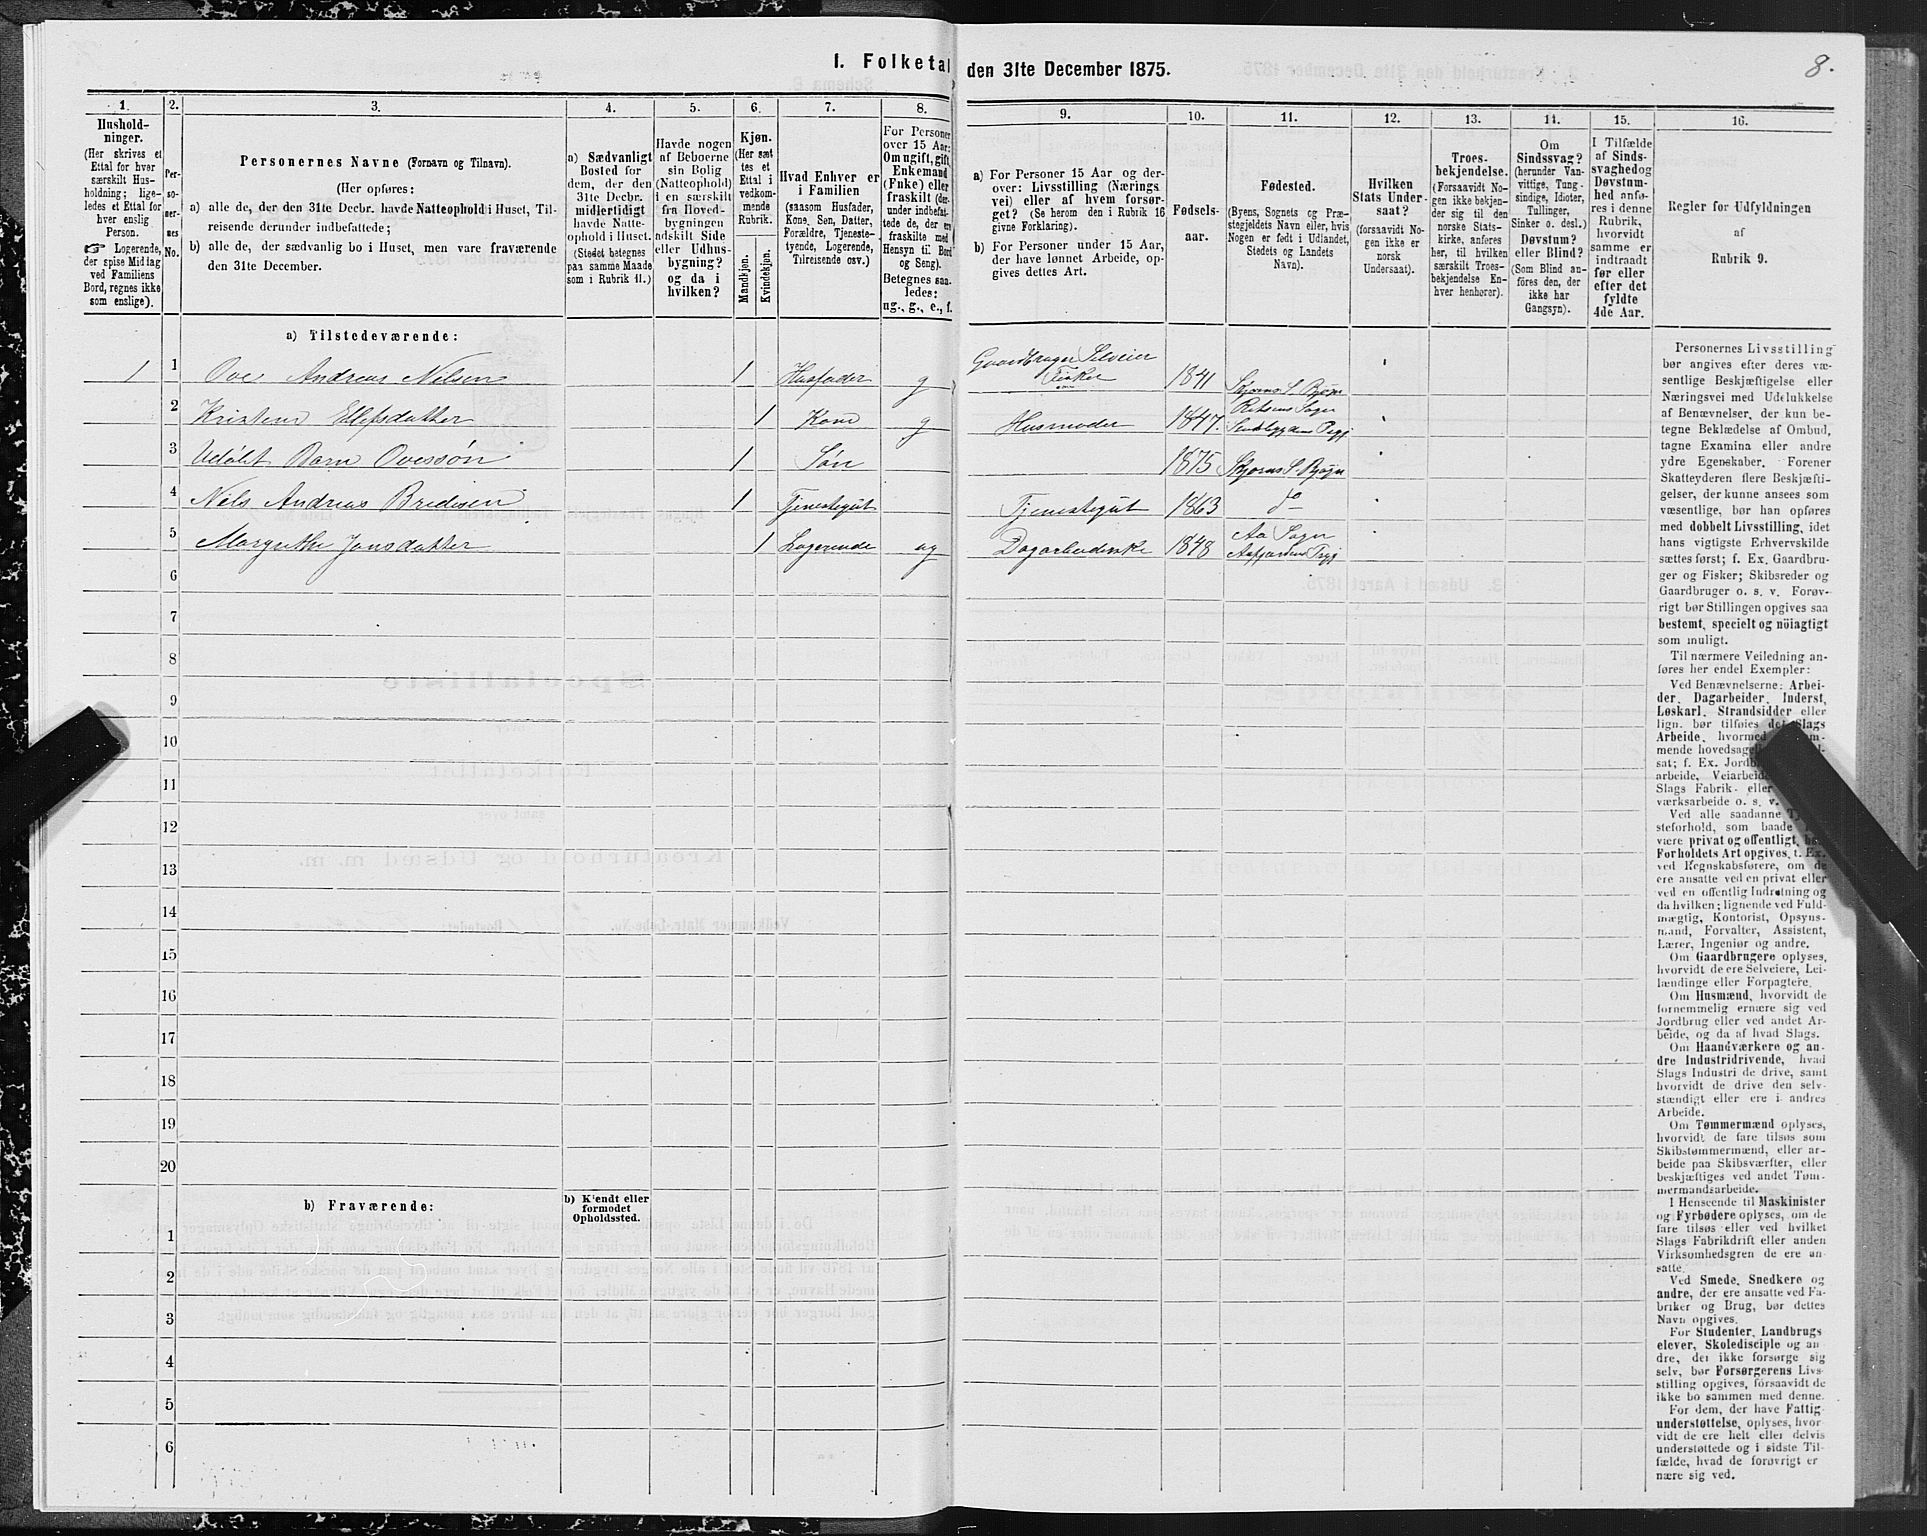 I. Folketal den 31te December 1875.
8.
1.
Hushold-
ninger.
(Her skrives et
Ettal for hver
særskilt Hus-
holdning; lige-
ledes et Ettal for
hver enslig
Person.
☞ Logerende,
der spise Middag
ved Familiens
Bord, regnes ikke
som enslige).
2.
Per-
so-
ner-
nes
No.
3.
Personernes Navne (Fornavn og Tilnavn).
(Her opføres:
a) alle de, der den 31te Decbr. havde Natteophold i Huset, Til-
reisende derunder indbefattede;
b) alle de, der sædvanlig bo i Huset, men vare fraværende
den 31te December.
4.
a) Sædvanligt
Bosted for
dem, der den
31te Decbr.
midlertidigt
havde Natte-
ophold i Huset.
(Stedet betegnes
paa samme Maade
som i Rubrik 11.)
5.
Havde nogen
af Beboerne
sin Bolig
(Natteophold)
i en særskilt
fra Hoved-
bygningen
adskilt Side
eller Udhus-
bygning?
og da i
hvilken?
6.
Kjøn.
(Her sæt
tes et
Ettal i
vedkom-
mende
Rubrik.
Mandkjøn.
Kvindekjøn.
7.
Hvad Enhver er
i Familien
(saasom Husfader,
Kone, Søn, Datter,
Forældre, Tjeneste-
tyende, Logerende,
Tilreisende osv.)
8.
For Personer
over 15 Aar:
Om ugift, gift,
Enkemand
(Enke) eller
fraskilt (der-
under indbefat-
tede de, der ere
fraskilte med
Hensyn til Bord
og Seng).
Betegnes saa-
ledes:
ug., g., e., f.
9.
a) For Personer 15 Aar og der-
over: Livsstilling (Nærings-
vei) eller af hvem forsør-
get? (Se herom den i Rubrik 16
givne Forklaring).
b) For Personer under 15 Aar,
der have lønnet Arbeide, op-
gives dettes Art.
10.
Fødsels-
aar.
11.
Fødested.
(Byens, Sognets og Præ-
stegjeldets Navn eller, hvis
Nogen er født i Udlandet,
Stedets og Landets
Navn).
12.
Hvilken
Stats Under-
saat?
(forsaavidt No-
gen ikke er
norsk
Undersaat).
13.
Troes-
bekjendelse.
(Forsaavidt No-
gen ikke bekjen-
der sig til den
norske Stats-
kirke, anføres
her, til hvilken
særskilt Troes-
bekjendelse En-
hver henhører).
14.
Om
Sindssvag?
(herunder Van-
vittige, Tung-
sindige, Idioter,
Tullinger,
Sinker o. desl.)
Døvstum?
eller Blind?
(Som Blind an-
føres den, der
ikke har
Gangsyn).
15.
I Tilfælde
af Sinds-
svaghed og
Døvstum-
hed anfø-
res i denne
Rubrik,
hvorvidt
samme er
indtraadt
før eller
efter det
fyldte
4de Aar.
16.
Regler for Udfyldningen
af
Rubrik 9.
a) Tilstedeværende:
1 1 Ove Andreas Nelsen 1 Husfader g Gaardbruger Selveier Fisker 1841 Skjørns S. Bjøgn
2 Kristene Ellefsdatter 1 Kone g Husmoder 1847.
3 Udøbt Barn Ovessøn 1 Søn 1875 Skjørns S. Bjøgn
4 Nels Andreas Bredesen 1 Tjenestegut Tjenestegut 1863 do
5 Margrethe Jonsdatter 1 Logerende ug 1848 Aa Sogn
6
7
8
9
10
11
12
13
14
15
16
17
18
19
20
b) Fraværende:
b) Kjendt eller
formodet
Opholdssted.
1
2
3
4
5
6
Personernes Livsstilling
bør angives efter deres væ-
sentlige Beskjæftigelse eller
Næringsvei med Udelukkelse
af Benævnelser, der kun be-
tegne Beklædelse af Ombud,
tagne Examina eller andre
ydre Egenskaber. Forener
Skatteyderen flere Beskjæfti-
gelser, der kunne ansees som
væsentlige, bør han opføres
med dobbelt Livsstilling, idet
hans vigtigste Erhvervskilde
sættes først; f. Ex. Gaardbru-
ger og Fisker; Skibsreder og
Gaardbruger o. s. v. Forøv-
rigt bør Stillingen opgives saa
bestemt, specielt og nöiagtigt
som muligt.
Til nærmere Veiledning an-
føres her endel Exempler:
Ved Benævnelserne: Arbei-
der, Dagarbeider, Inderst,
Løskarl, Strandsidder eller
lign. bør tilføies det Slags
Arbeide, hvormed
mende hovedsagelig
sat; f. Ex. Jord
arbeide, Veiarbeide
Slags Fabrik- eller
værksarbeide o. s. v.
Ved alle saadanne
steforhold, som baade
være privat og offentligt, bør
Forholdets Art opgives, t. Ex.
ved Regnskabsførere, om de
ere ansatte ved en privat eller
ved en offentlig Indretning og
da hvilken; lignende ved Fuld-
mægtig, Kontorist, Opsyns-
mand, Forvalter, Assistent,
Lærer, Ingeniør og andre.
Om Gaardbrugere oplyses,
hvorvidt de ere Selveiere, Lei-
lændinge eller Forpagtere.
Om Husmænd, hvorvidt de
fornemmelig ernære sig ved
Jordbrug eller ved andet Ar-
beide, og da af hvad Slags.
Om Haandværkere og an-
dre Industridrivende, hvad
Slags Industri de drive, samt
hvorvidt de drive den selv-
stændigt eller ere i andres
Arbeide.
Om Tømmermænd oplyses,
hvorvidt de fare tilsøs som
Skibstømmermænd, eller ar-
beide paa Skibsværfter, eller
beskjæftiges ved andet Tøm-
mermandsarbeide.
I Henseende til Maskinister
og Fyrbødere oplyses, om de
fare tilsøs eller ved hvilket
Slags Fabrikdrift eller anden
Virksomhedsgren de ere an-
satte.
Ved Smede, Snedkere og
andre, der ere ansatte ved Fa-
briker og Brug, bør dettes
Navn opgives.
For Studenter, Landbrugs
elever, Skoledisciple og an-
dre, der ikke forsørge sig
selv, bør Forsørgerens Livs-
stilling opgives, forsaavidt de
ikke bo sammen med denne.
For dem, der have Fattig-
understøttelse, oplyses, hvor-
vidt de ere helt eller delvis
understøttede og i sidste Til-
fælde, hvad de forøvrigt er
nære sig ved.